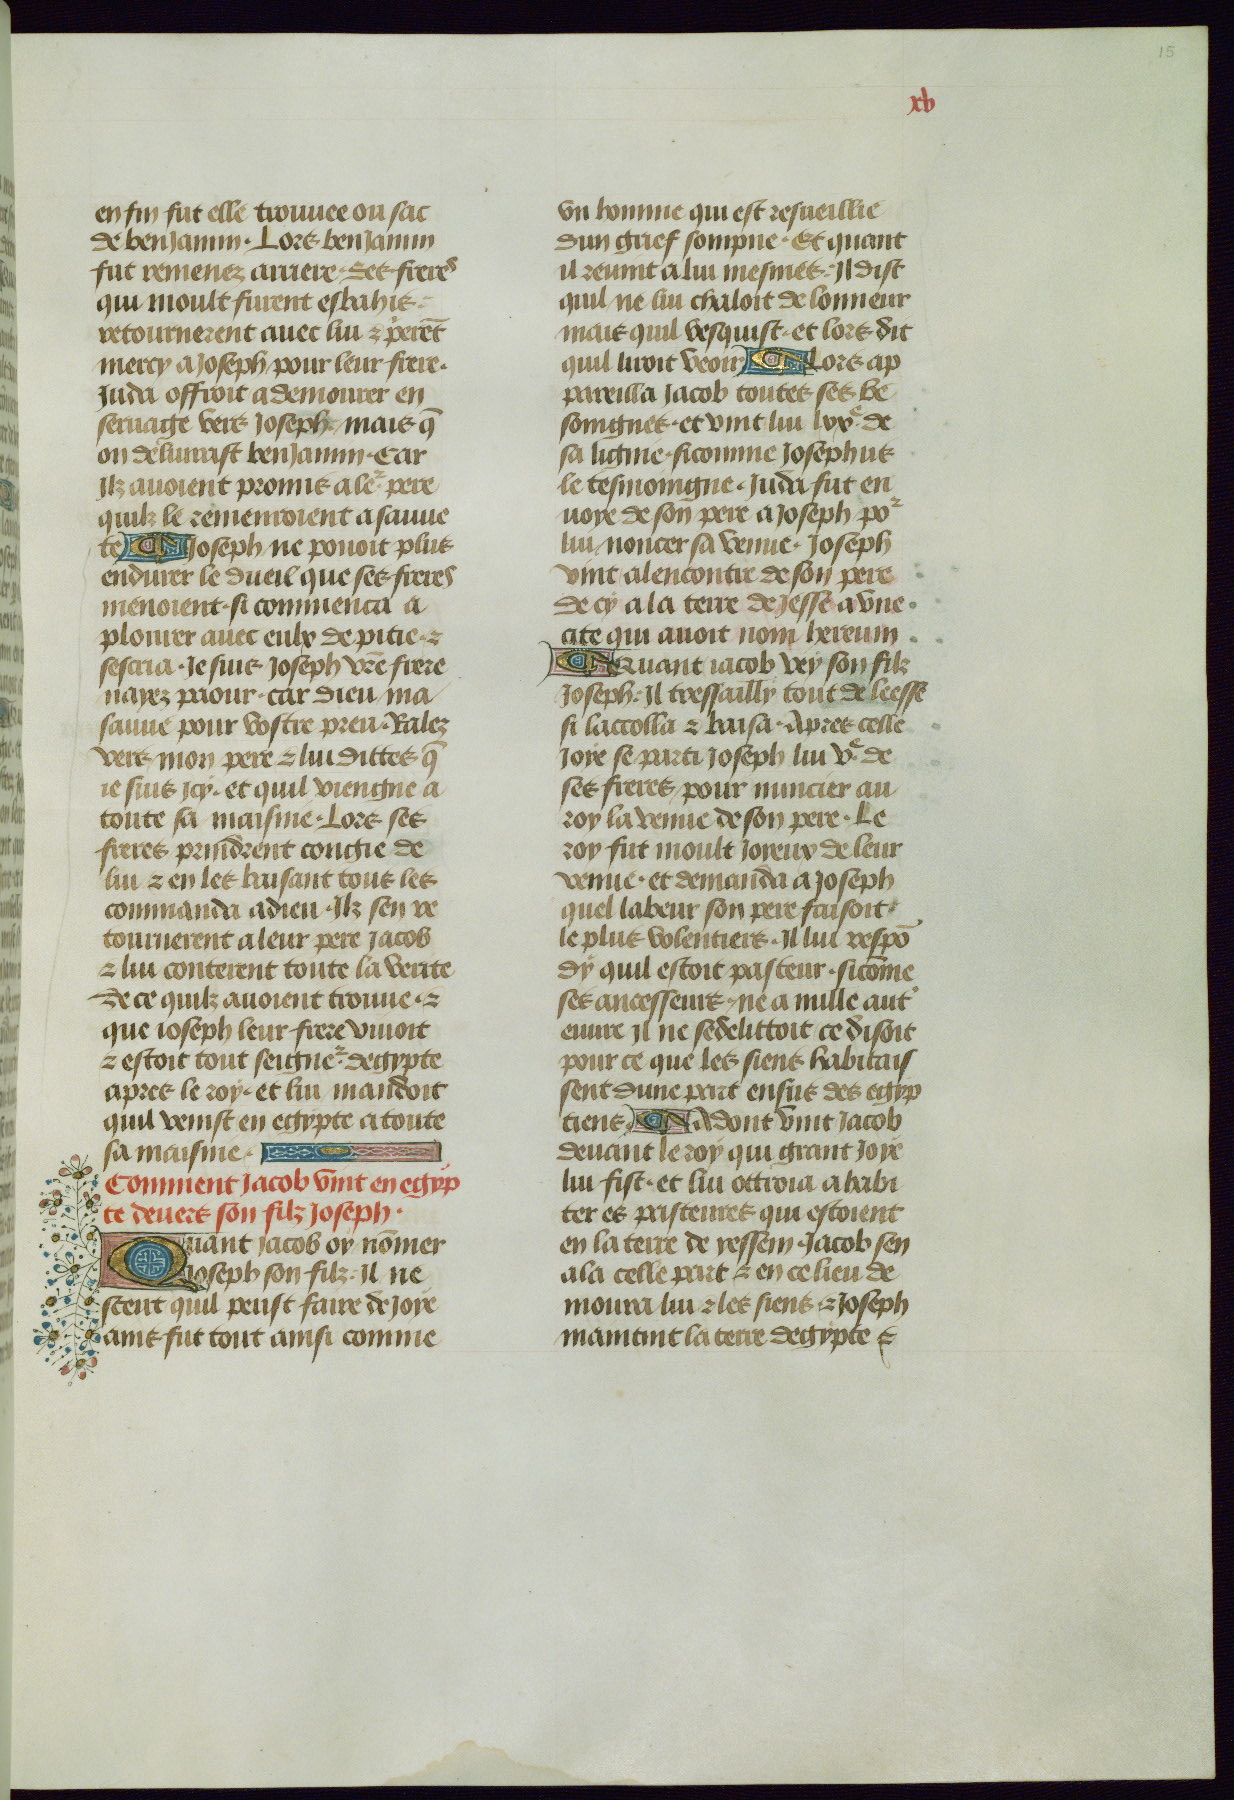 15
xv
en fin fut elle trouuee ou sac
de benjamin. Lors benjamin
fut remenez arriere. Ses freres
qui moult furent esbahis
retournerent auec lui ⁊
mercy a Joseph pour leur frere.
Juda offroit a demourer en
seruage vers Joseph mais q̃
on deliurast benjamin. Car
Ilz auoient promis a le² pere
quilz le remenroient a sauue
te Joseph ne pouoit plus
endurer le dueil que ses freres
menoient. si commenca a
plourer auec eulx de pitie. ⁊
sescria. Je suis Joseph vr̃e frere
naiez paour. car dieu ma
sauue pour vostre preu. Ralez
vers mon pere ⁊ lui dittes q̃
ie suis Jcy. et quil viengne a
toute sa maisnie. Lors ses
freres prindrent congie de
lui ⁊ en les baisant tous les
commanda adieu. Ilz sen re
tournerent a leur pere Jacob
⁊ lui conterent toute la verite
de ce quilz auoient trouue. ⁊
que ioseph leur frere viuoit
⁊ estoit tout seigne² degypte
apres le roy. et lui mandoit
quil venist en egypte a toute
sa maisnie.
Comment Jacob vint en egyp
te deuers son filz Joseph.
Quant Jacob oy nõmer
Joseph son filz. Il ne
sceut quil peust faire de Joye
ains fut tout ainsi comme
vn homme qui est resueillie
dun grief sompne. Et quant
il reuint a lui mesmes. Il dist
quil ne lui chaloit de lonneur
mais quil vesquist. et lors dit
quil liroit veoir Lors ap
pareilla Jacob toutes ses be
soingnes. et vint lui lxxᵉ de
sa lignie. sicomme Josephus
le tesmoingne. Juda fut en
uoye de son pere a Joseph po²
lui noncer sa venue. Joseph
vint alencontre de son pere
de cy a la terre de Jesse a vne
cite qui auoit nom hereum
Quant iacob vey son filz
Joseph. Il tressailly tout de leesse
si laccolla ⁊ baisa. Apres celle
Joye se parti Joseph lui vᵉ de
ses freres pour nuncier au
roy la venue de son pere. Le
roy fut moult Joyeux de leur
venue. et demanda a Joseph
quel labeur son pere faisoit
le plus volentiers. Il lui respõ
dy quil estoit pasteur. sicõme
ses ancesseurs. ne a nulle aut'
euure Il ne sedelittoit ce disoit
pour ce que les siens habitais
sent dune part ensus des egyp
tiens Adont vint Jacob
deuant le roy qui grant Joye
lui fist. et lui ottroia a habi
ter es pastures qui estoient
en la terre de yessem. Jacob sen
ala celle part ⁊ en ce lieu de
moura lui ⁊ les siens ⁊ Joseph
maintint la terre degypte ⁊